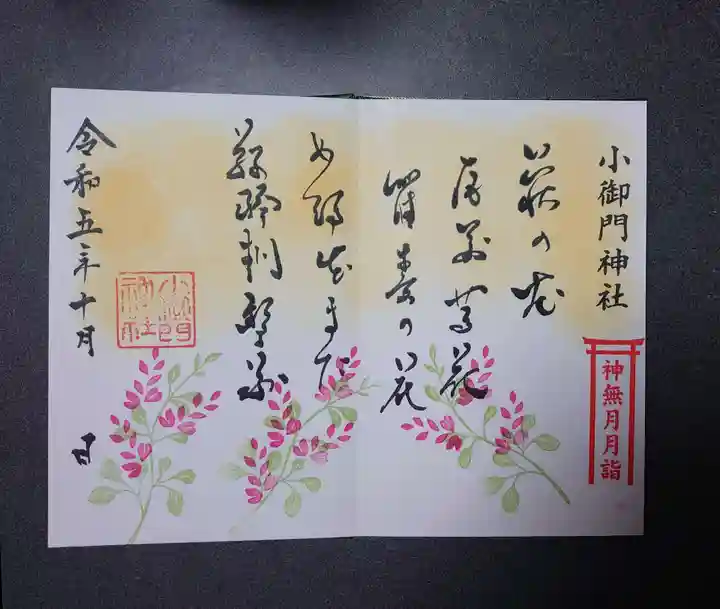 小御門神社
神無月月詣
萩の花
尾花葛花
瞿麦の花
女郎花また
令和五年十月 日
小御門神社